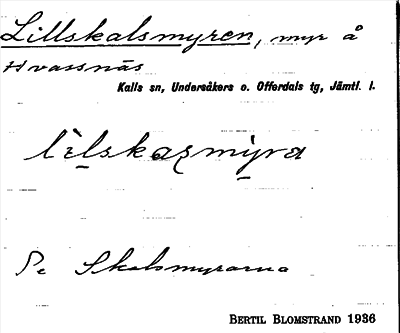 Lillskalsmyren, myr å
Hvassnäs
Kalls sn, Undersåkers o. Offerdals tg, Jämtl. l.
lìlskaʂmỳra
Se Skalsmyrarna
BERTIL BLOMSTRAND 1936